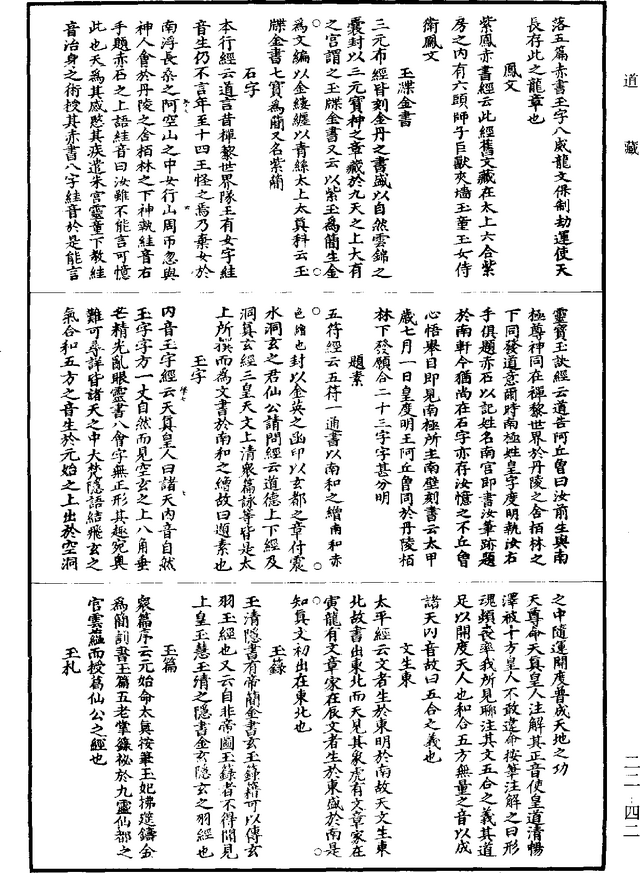 道藏
落五篇赤書玉字八威龍文保制劫運使天
長存此之龍章也
鳳文
紫鳳赤書經云此經舊文藏在太上六合紫
房之內有六頭師子巨獸夾墻玉童玉女侍
衛鳳文
玉牒金書
三元布經皆刻金丹之書盛以自然雲錦之
囊封以三元寶神之章藏於九天之上大有
之宮謂之玉牒金書又云以紫玉爲簡生金
爲文編以金縷纏以青絲太上太真科云玉
牒金書七寶爲簡又名紫簡
石字
本行經云道言昔禪黎世界隊王有女字絓
音生仍不言年至十四王怪之焉乃棄女於
南浮長桑之阿空山之中女行山周帀忽與
神人會於丹陵之舍柏林之下神執絓音右
手題赤石之上語絓音曰汝雖不能言可憶
此也天爲其感愍其疾遣朱宮靈童下教絓
音治身之術授其赤書八字絓音於是能言
靈寶玉訣經云道告阿丘曾曰汝前生與南
極尊神同在禪黎世界於丹陵之舍柏林之
下同發道意爾時南極姓皇字度明執汝右
手俱題赤石以記姓名南宮即書汝筆跡題
於南軒今猶尚在石字亦存汝憶之不丘曾
心悟舉目即見南極所主南壁刻書云太甲
歲七月一日皇度明王阿丘曾同於丹陵柏
林下發願合二十三字字甚分明
題素
五符經云五符一通書以南和之繒南和赤
色繒也封以金英之函印以玄都之章付震
水洞玄之君仙公請問經云道德上下經及
洞真玄經三皇天文上清衆篇詠等皆是太
上所撰而爲文書於南和之繒故曰題素也
玉字
內音玉字經云天真皇人曰諸天內音自然
玉字字方一丈自然而見空玄之上八角垂
芒精光亂眼靈書八會字無正形其趣宛奧
難可尋詳皆諸天之中大梵隱語結飛玄之
氣合和五方之音生於元始之上出於空洞
之中隨運開度普成天地之功
天尊命天真皇人注解其正音使皇道清暢
澤被十方皇人不敢違命按筆注解之曰形
魂頓喪率我所見聊注其文五合之義其道
足以開度天人也和合五方無量之音以成
諸天內音故曰五合之義也
文生東
太平經云文者生於東明於南故天文生東
北故書出東北而天見其象虎有文章家在
寅龍有文章家在辰文者生於東盛於南是
知真文初出在東北也
玉籙
玉清隱書有帝簡金書玄玉籙籍可以傳玄
羽玉經也又云自非帝圖玉籙者不得聞見
上皇玉慧玉清之隱書金玄隱玄之羽經也
玉篇
衆篇序云元始命太真按筆玉妃拂筵鑄金
爲簡刻書玉篇五老掌籙祕於九靈仙都之
宮雲蘊而授葛仙公之經也
玉札
二二·四二